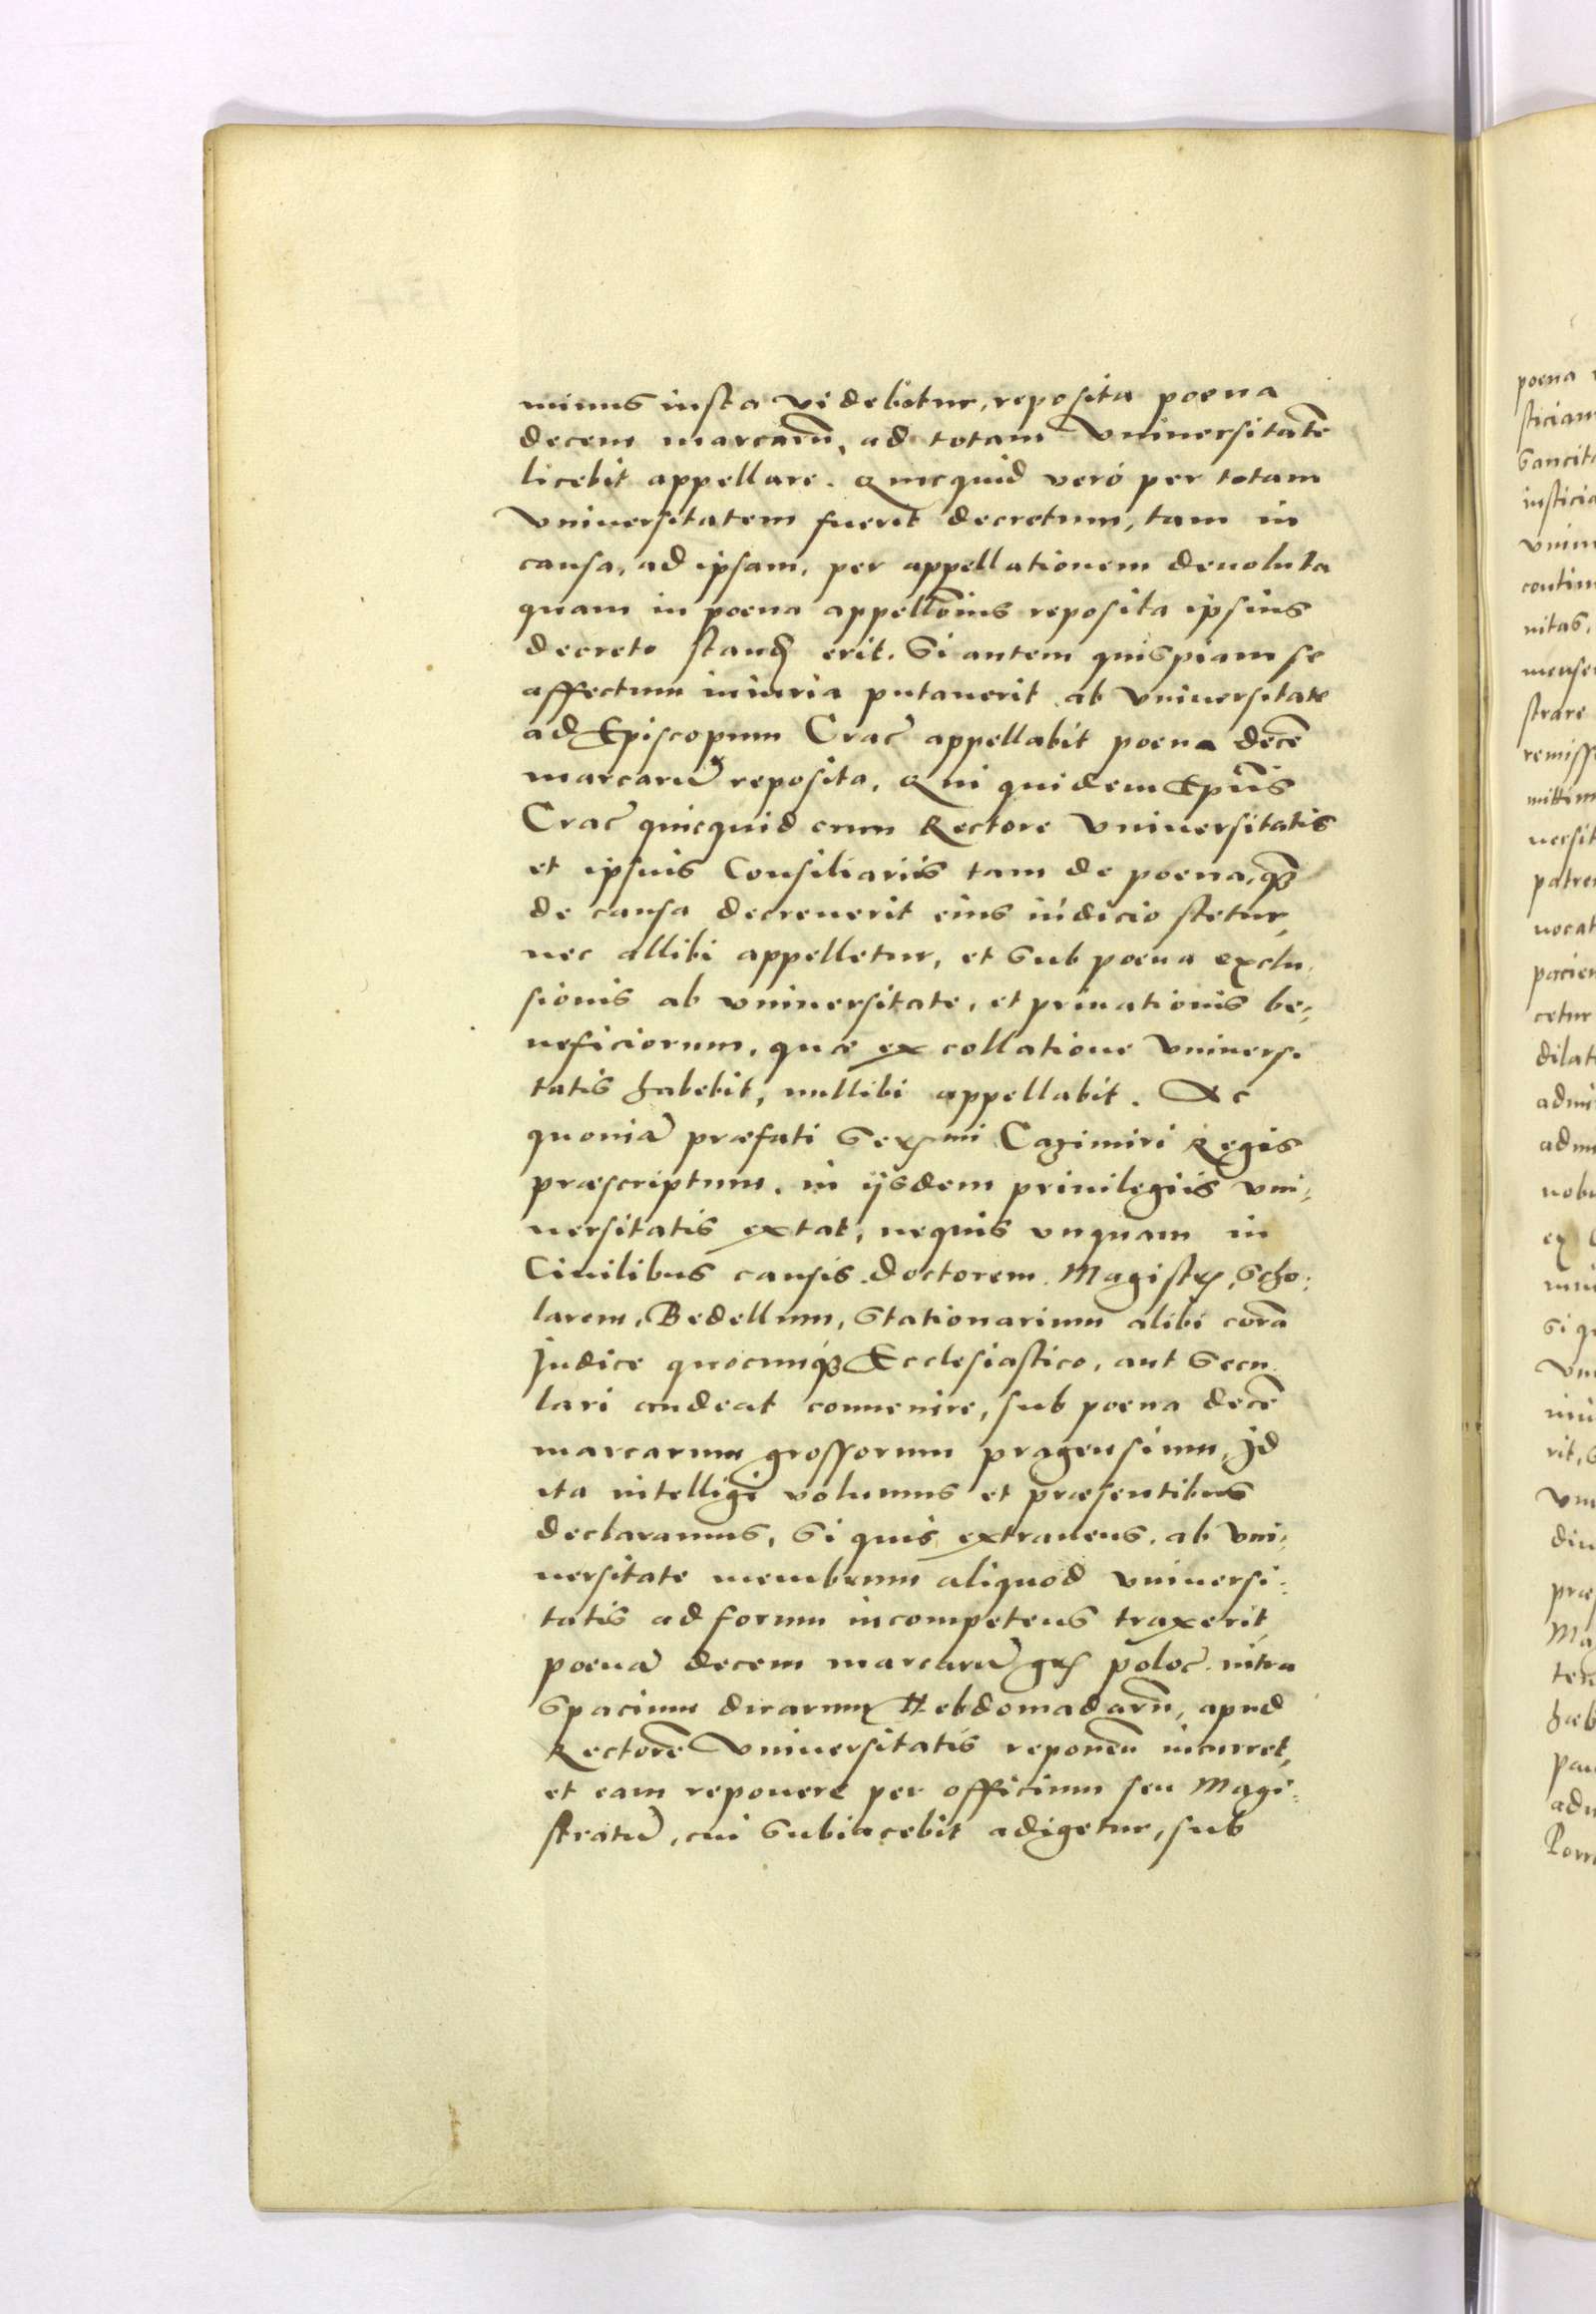 minus iusta videbitur, reposita poena
decem marcarũ, ad totam Vniuersitatẽ
licebit appellare. Quicquid veró per totam
Vniuersitatem fuerit decretum, tam in
causa, ad ipsam, per appellationem deuoluta
quam in poena appellõnis reposita ipsius
decreto stanḍ erit. Si autem quispiam se
affectum iniuria putauerit ab Vniuersitate
ad Episcopum Crac̃ appellabit poena decẽ
marcarũ reposita. Qui quidem Epũs
Crac̃ quicquid cum Rectore Vniuersitatis
et ipsius Consiliariis tam de poena, q̃
de causa decreuerit eius iudicio stetur,
nec allibi appelletur, et sub poena exclu
sionis ab vniuersitate, et priuationis be:
neficiorum, quæ ex collatione Vniuersi
tatis habebit, nullibi appellabit. Ac
quoniã præfati Serᵐⁱ Cazimiri Regis
præscriptum, in ijsdem priuilegiis vni:
uersitatis extat, nequis vnquam in
Ciuilibus causis doctorem Magistrꝝ, Scho:
larem, Bedellum, Stationarium alibi corã
Judice quocumqꝫ Ecclesiastico, aut Secu
lari audeat conuenire, sub poena decẽ
marcarum grossorum pragensium, Jd
ita intelligi volumus et præsentibus
declaramus, Si quis extraneus, ab vni:
uersitate membrum aliquod vniuersi:
tatis ad forum incompetens traxerit,
poenã decem marcarũ grꝭ poloc̃ intra
Spacium duarum Hebdomadarũ, apud
Rectorẽ Vniuersitatis reponẽn incurret,
et eam reponere per officium seu Magi:
stratũ, cui Subiacebit adigetur, sub